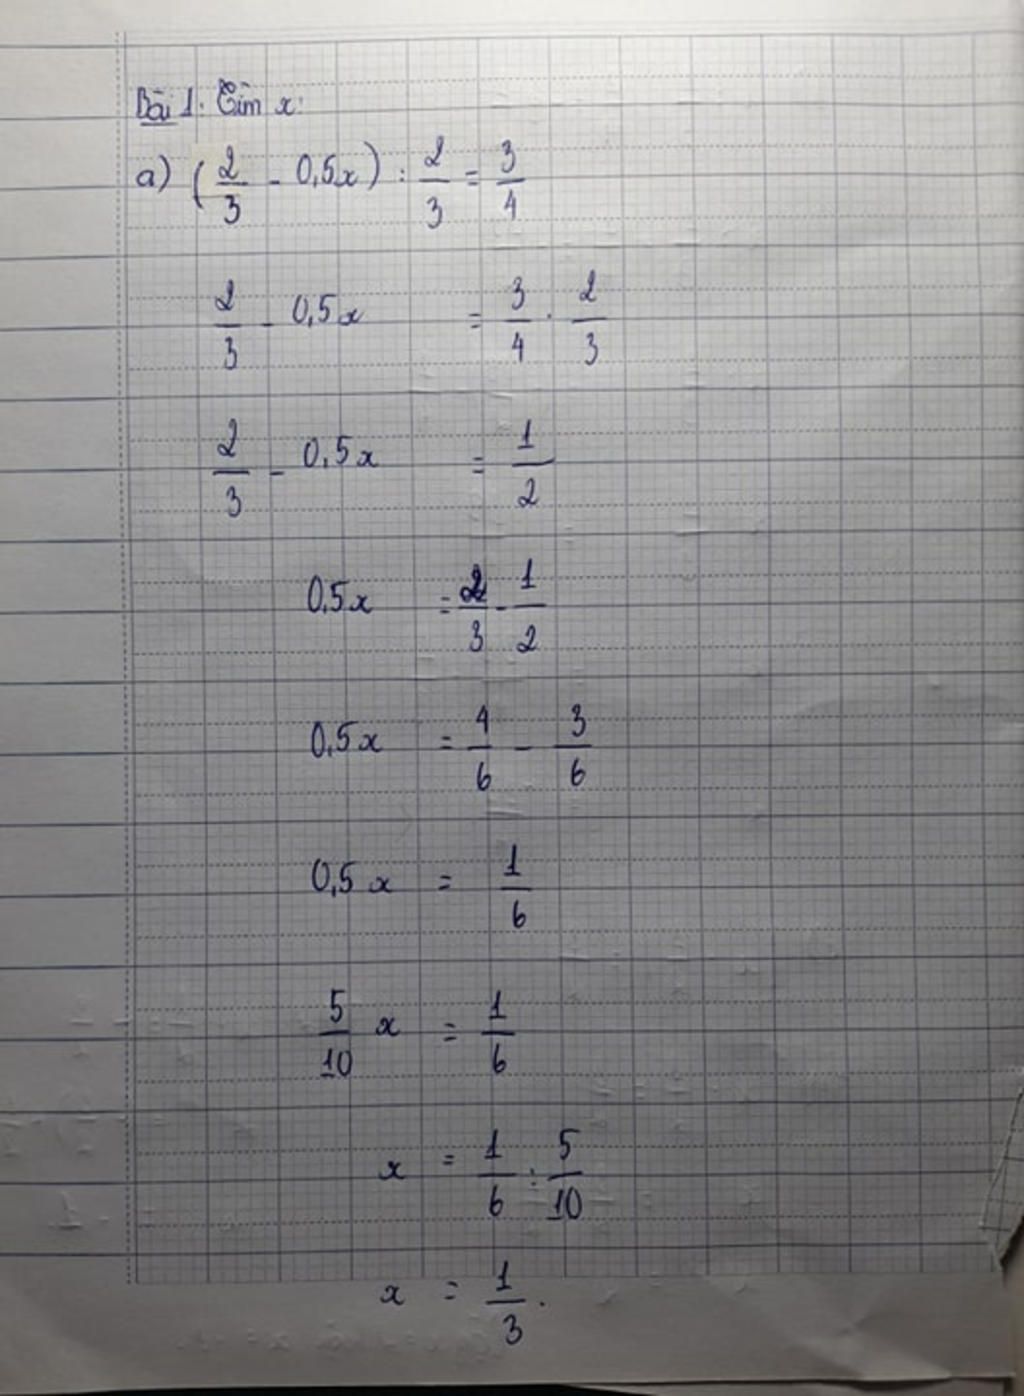 Bài 1: Tìm x:
a) (2/3 - 0,5x) : 2/3 = 3/4
2/3 - 0,5x = 3/4 . 2/3
2/3 - 0,5x = 1/2
0,5x = 2/3 - 1/2
0,5x = 4/6 - 3/6
0,5x = 1/6
5/10 x = 1/6
x = 1/6 : 5/10
x = 1/3.